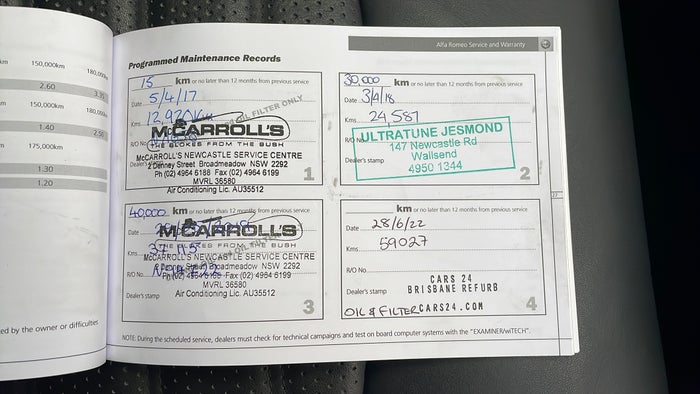 Alfa Romeo Service and Warranty
km 150,000km 180,00
2.60 3.35
km 150,000km 180,00
1.40 2.95
km 175,000km
1.30
1.20
ed by the owner or difficulties
Programmed Maintenance Records
15 km or no later than 12 months from previous service
Date 5/4/17
Kms 12,920km
OIL FILTER ONLY
McCARROLL'S
R/O No
THE BLOKES FROM THE BUSH
McCARROLL'S NEWCASTLE SERVICE CENTRE
Dealer's
2 Denney Street Broadmeadow NSW 2292
Ph (02) 4964 6188 Fax (02) 4964 6199
MVRL 36580
Air Conditioning Lic. AU35512
1
30,000 km or no later than 12 months from previous service
Date 3/4/18
Kms 24,587
R/O No
ULTRATUNE JESMOND
147 Newcastle Rd
Dealer's stamp
Wallsend
4950 1344
2
40,000 km or no later than 12 months from previous service
Date
McCARROLL'S
Kms
THE BLOKES FROM THE BUSH
OIL FILTER
McCARROLL'S NEWCASTLE SERVICE CENTRE
R/O No.
Broadmeadow NSW 2292
Fax (02) 4964 6199
MVRL 36580
Dealer's stamp
Air Conditioning Lic. AU35512
3
km or no later than 12 months from previous service
Date 28/6/22
Kms 59027
R/O No.
CARS 24
Dealer's stamp
BRISBANE REFURB
OIL & FILTER CARS24.COM
4
NOTE: During the scheduled service, dealers must check for technical campaigns and test on board computer systems with the "EXAMINER/wiTECH".